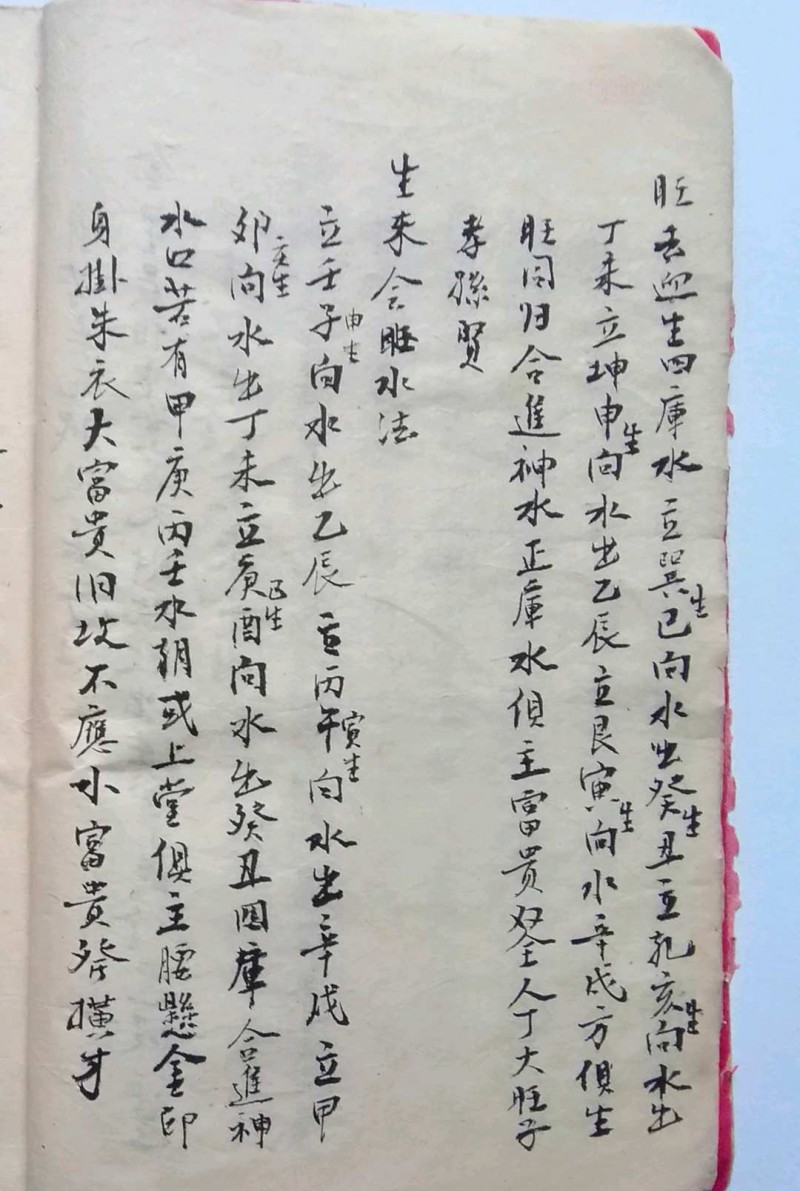 旺去迎生四庫水立巽巳生向水出癸生丑立乾亥生向水出
丁未立坤申生向水出乙辰立艮寅生向水辛戌方俱生
旺同归合進神水正庫水俱主富贵双全人丁大旺子
孝孫賢
生来会旺水法
立壬子申生向水出乙辰立丙午寅生向水出辛戌立甲
卯亥生向水出丁未立庚酉巳生向水出癸丑囬庫合進神
水口若有甲庚丙壬水朝或上堂俱主腰懸金印
身掛朱衣大富貴旧坟不應小富貴發橫才